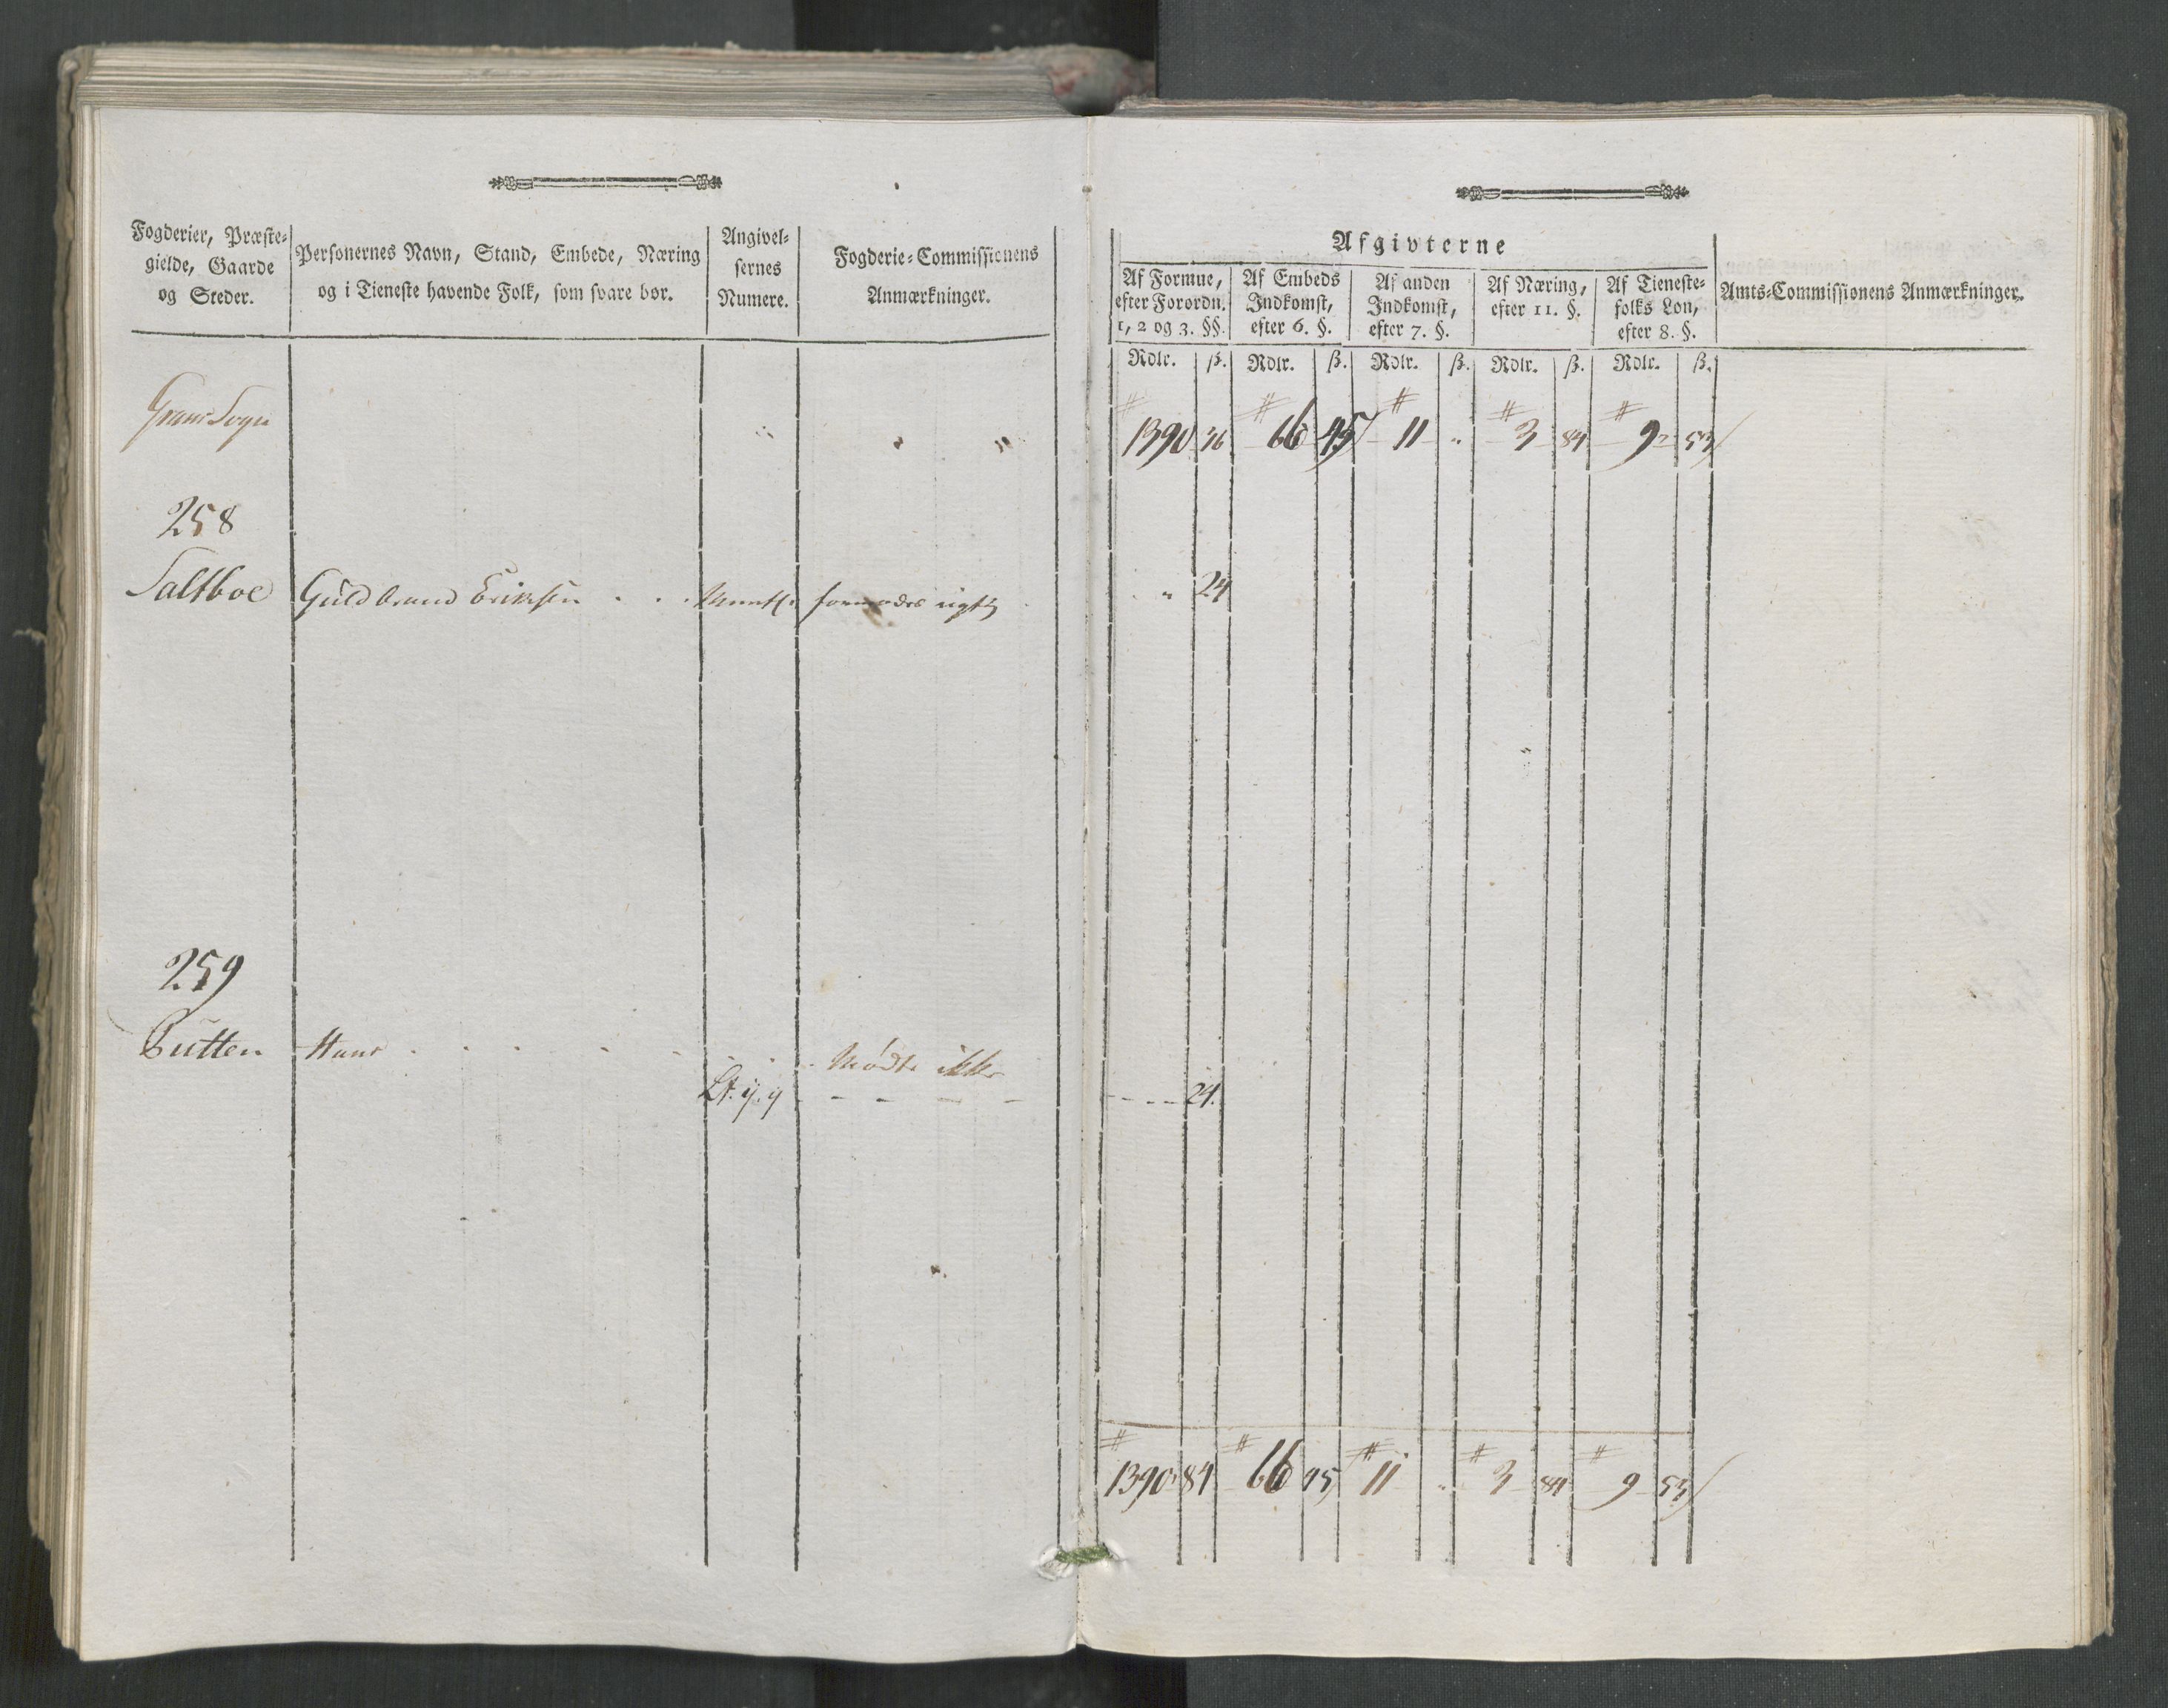 Fogderier, Præste-
gielde, Gaarde
og Steder.
Personernes Navn, Stand, Embede, Næring
og i Tieneste havende Folk, som svare bør.
Angivel-
sernes
Numere.
Fogderie-Commissionens
Anmærkninger.
Grans Sogn
" " "
258
Saltboe Guldbrand Eriksen . . . Mundtl. formodes rigtig
259
Putten Hans . . . . .
Mødte ikke
Lt. y. y - - - - -
Afgivterne
Af Formue,
efter Forordn.
1, 2 og 3. §§.
Af Embeds
Indkomst,
efter 6. §.
Af anden
Indkomst,
efter 7. §.
Af Næring,
efter 11. §.
Af Tieneste-
folks Løn,
efter 8. §.
Amts-Commissionens Anmærkninger.
Rdlr. ß. Rdlr. ß. Rdlr. ß. Rdlr. ß. Rdlr. ß.
1390 36 66 45 11 " 3 84 9 53
" 24
- - - - 24.
1390 84 66 45 11 " 3 84 9 53